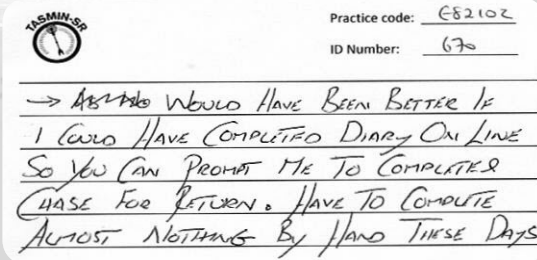 TASMIN-SR
Practice code: E82102
ID Number: 670
→ WOULD HAVE BEEN BETTER IF
I COULD HAVE COMPLETED DIARY ON LINE
SO YOU CAN PROMPT ME TO COMPLETE &
CHASE FOR RETURN. HAVE TO COMPLETE
ALMOST NOTHING BY HAND THESE DAYS